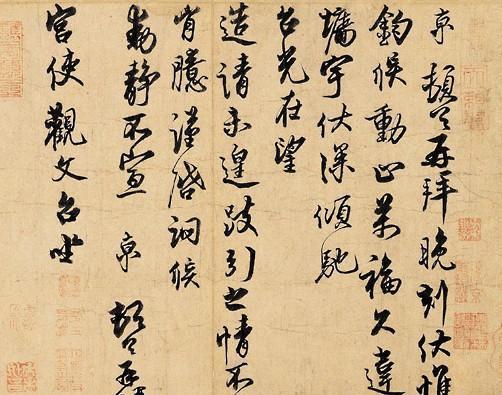 京頓首再拜晚刻伏惟
鈞候動止萬福久違
墻宇伏深傾馳
台光在望
造請未遑跂引之情不
胷臆謹啓詞候
動靜不宣 京 頓首再
宮使觀文台坐